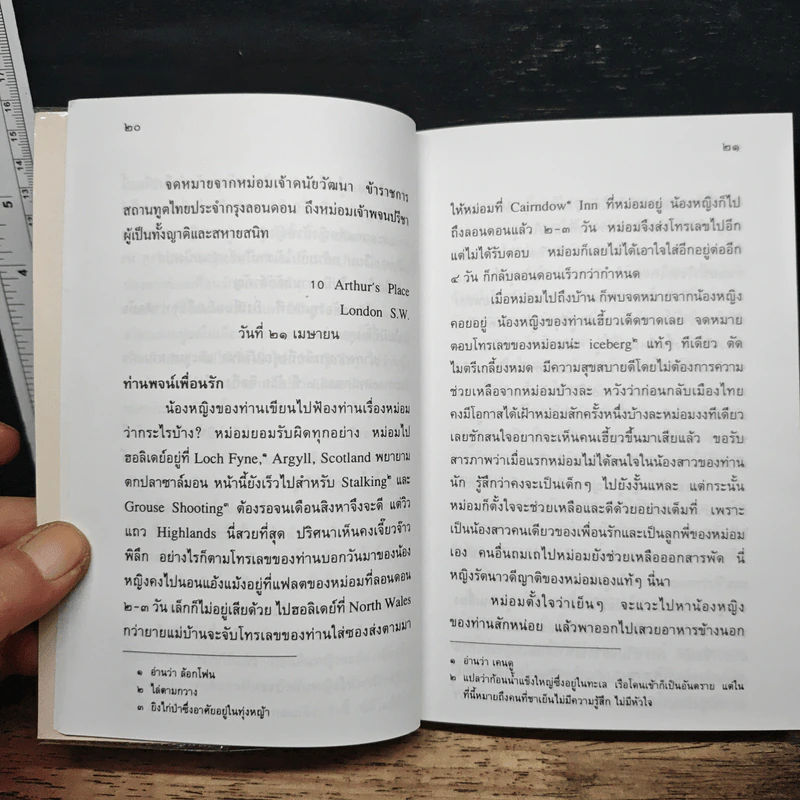 ๒๐
จดหมายจากหม่อมเจ้าดนัยวัฒนา ข้าราชการ
สถานทูตไทยประจำกรุงลอนดอน ถึงหม่อมเจ้าพจนปรีชา
ผู้เป็นทั้งญาติและสหายสนิท
10 Arthur's Place
London S.W.
วันที่ ๒๑ เมษายน
ท่านพจน์เพื่อนรัก
น้องหญิงของท่านเขียนไปฟ้องท่านเรื่องหม่อม
ว่ากระไรบ้าง? หม่อมยอมรับผิดทุกอย่าง หม่อมไป
ฮอลิเดย์อยู่ที่ Loch Fyne,๑ Argyll, Scotland พยายาม
ตกปลาซาล์มอน หน้านี้ยังเร็วไปสำหรับ Stalking๒ และ
Grouse Shooting๓ ต้องรอจนเดือนสิงหาจึงจะดี แต่วิว
แถว Highlands นี่สวยที่สุด ปริศนาเห็นคงเจี๊ยวจ๊าว
พิลึก อย่างไรก็ตามโทรเลขของท่านบอกวันมาของน้อง
หญิงคงไปนอนแอ้งแม้งอยู่ที่แฟลตของหม่อมที่ลอนดอน
๒-๓ วัน เล็กก็ไม่อยู่เสียด้วย ไปฮอลิเดย์ที่ North Wales
กว่ายายแม่บ้านจะจับโทรเลขของท่านใส่ซองส่งตามมา
๑ อ่านว่า ล้อกโฟน
๒ ไล่ตามกวาง
๓ ยิงไก่ป่าซึ่งอาศัยอยู่ในทุ่งหญ้า
๒๑
ให้หม่อมที่ Cairndow๑ Inn ที่หม่อมอยู่ น้องหญิงก็ไป
ถึงลอนดอนแล้ว ๒-๓ วัน หม่อมจึงส่งโทรเลขไปอีก
แต่ไม่ได้รับตอบ หม่อมก็เลยไม่ได้เอาใจใส่อีกอยู่ต่ออีก
๔ วัน ก็กลับลอนดอนเร็วกว่ากำหนด
เมื่อหม่อมไปถึงบ้าน ก็พบจดหมายจากน้องหญิง
คอยอยู่ น้องหญิงของท่านเฮี้ยวเด็ดขาดเลย จดหมาย
ตอบโทรเลขของหม่อมน่ะ iceberg๒ แท้ๆ ทีเดียว ตัด
ไมตรีเกลี้ยงหมด มีความสุขสบายดีโดยไม่ต้องการความ
ช่วยเหลือจากหม่อมบ้างละ หวังว่าก่อนกลับเมืองไทย
คงมีโอกาสได้เฝ้าหม่อมสักครั้งหนึ่งบ้างละหม่อมงงทีเดียว
เลยชักสนใจอยากจะเห็นคนเฮี้ยวขึ้นมาเสียแล้ว ขอรับ
สารภาพว่าเมื่อแรกหม่อมไม่ได้สนใจในน้องสาวของท่าน
นัก รู้สึกว่าคงจะเป็นเด็กๆ ไปยังงั้นแหละ แต่กระนั้น
หม่อมก็ตั้งใจจะช่วยเหลือและดีด้วยอย่างเต็มที่ เพราะ
เป็นน้องสาวคนเดียวของเพื่อนรักและเป็นลูกพี่ของหม่อม
เอง คนอื่นถมเถไปหม่อมยังช่วยเหลือออกสารพัด นี่
หญิงรัตนาวดีญาติของหม่อมเองแท้ๆ นี่นา
หม่อมตั้งใจว่าเย็นๆ จะแวะไปหาน้องหญิง
ของท่านสักหน่อย แล้วพาออกไปเสวยอาหารข้างนอก
๑ อ่านว่า เคนดู
๒ แปลว่าก้อนน้ำแข็งใหญ่ซึ่งอยู่ในทะเล เรือโดนเข้าก็เป็นอันตราย แต่ใน
ที่นี้หมายถึงคนที่ชาเย็นไม่มีความรู้สึก ไม่มีหัวใจ